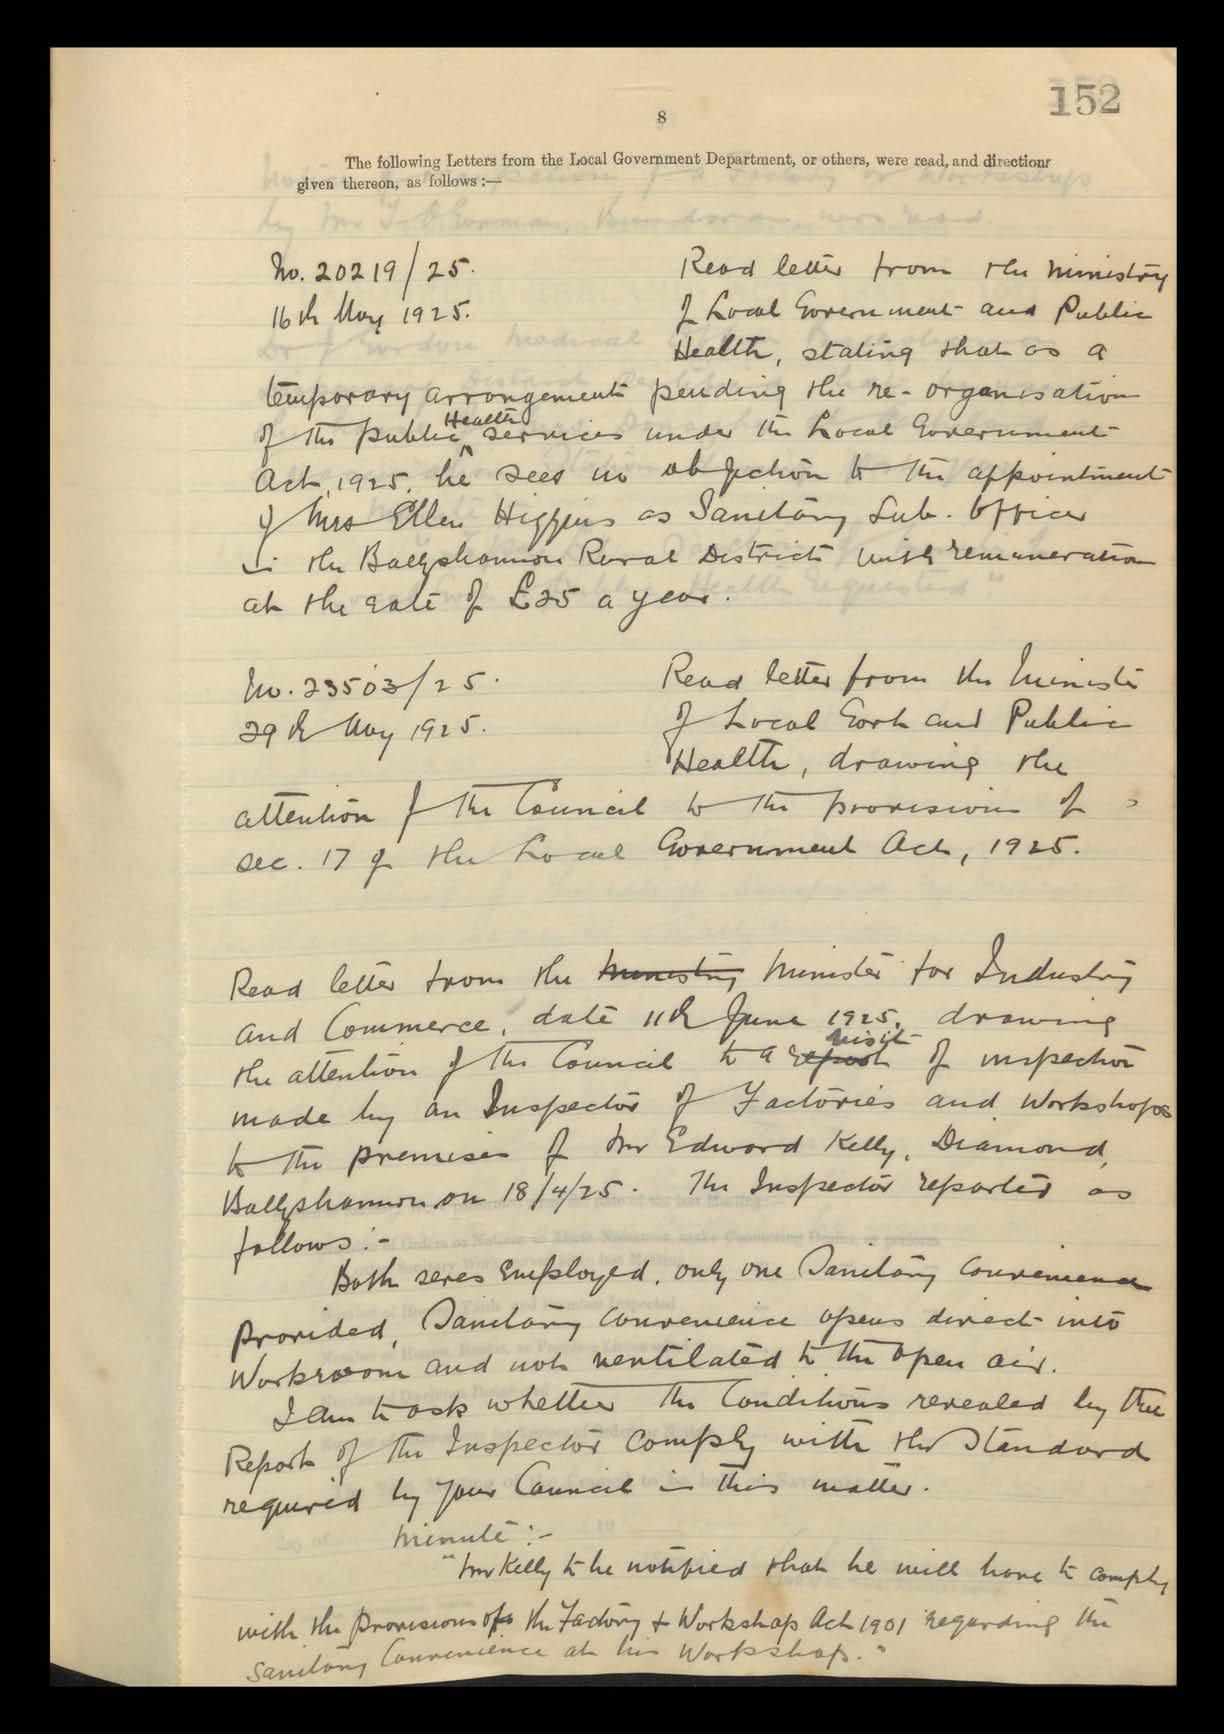 152
8
The following Letters from the Local Government Department, or others, were read, and directions
given thereon, as follows :—
No. 20219/25. Read letter from the Ministry
16th May 1925. of Local Government and Public
Health, stating that as a
temporary arrangement pending the re-organisation
of the public Health services under the Local Government
Act, 1925, he sees no objection to the appointment
of Mrs Ellen Higgins as Sanitary Sub. Officer
in the Ballyshannon Rural District with remuneration
at the rate of £25 a year.
No. 23503/25. Read letter from the Minister
29th May 1925. of Local Govt and Public
Health, drawing the
attention of the Council to the provisions of
sec. 17 of the Local Government Act, 1925.
Read letter from the Ministry Minister for Industry
and Commerce, date 11th June 1925, drawing
visit
the attention of the Council to a report of inspection
made by an Inspector of Factories and Workshops
to the premises of Mr Edward Kelly, Diamond,
Ballyshannon on 18/4/25. The Inspector reported as
follows :-
Both sexes employed, only one Sanitary Convenience
provided, Sanitary Convenience opens direct into
Workroom and not ventilated to the open air.
I am to ask whether the Conditions revealed by the
Report of the Inspector comply with the Standard
required by your Council in this matter.
Minute :-
"Mr Kelly to be notified that he will have to comply
with the provisions of the Factory & Workshops Act 1901 regarding the
Sanitary Convenience at his Workshop."